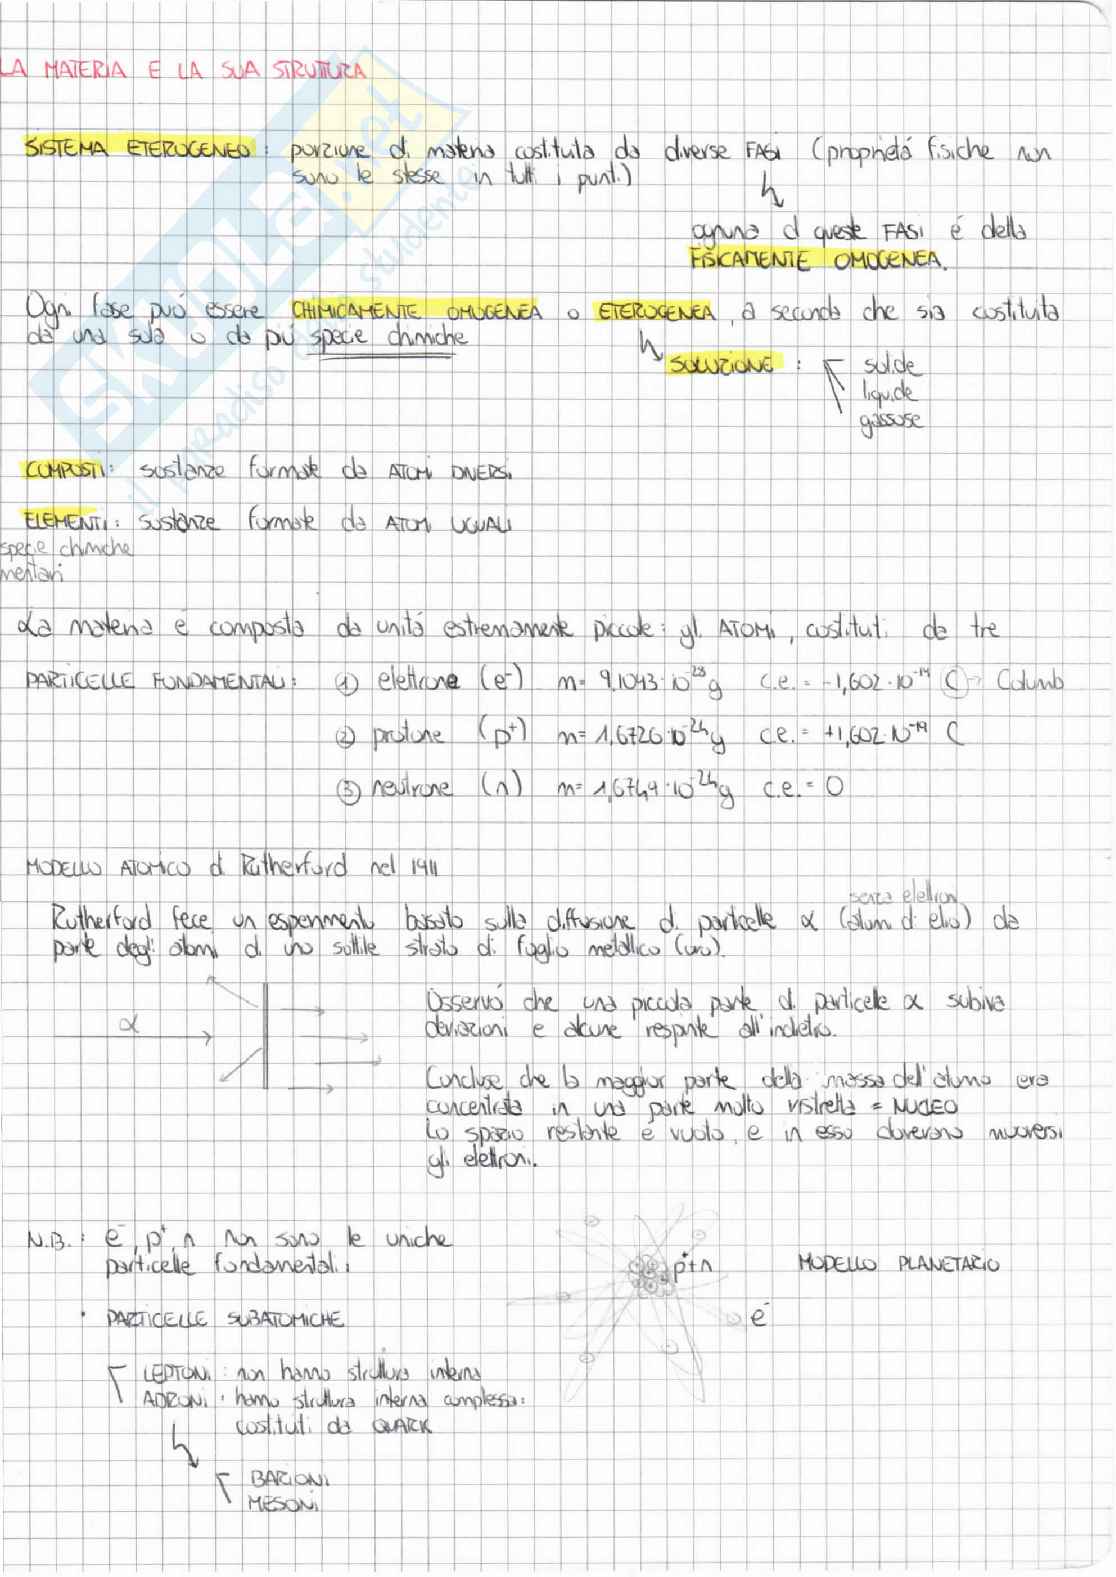 LA MATERIA E LA SUA STRUTTURA
SISTEMA ETEROGENEO : porzione di materia costituita da diverse FASI (proprietá fisiche non
sono le stesse in tutti i punti)
ognuna di queste FASI é detta
FISICAMENTE OMOGENEA.
Ogni fase puó essere CHIMICAMENTE OMOGENEA o ETEROGENEA, a seconda che sia costituita
da una sola o da piú specie chimiche
SOLUZIONE : solide
liquide
gassose
COMPOSTI: sostanze formate da ATOMI DIVERSI
ELEMENTI: sostanze formate da ATOMI UGUALI
specie chimiche
mentari
La materia é composta da unitá estremamente piccole: gli ATOMI, costituiti da tre
PARTICELLE FONDAMENTALI: ① elettrone (e⁻) m= 9,1093·10⁻²⁸g c.e.= -1,602·10⁻¹⁹ C → Columb
② protone (p⁺) m= 1,6726·10⁻²⁴g c.e.= +1,602·10⁻¹⁹ C
③ neutrone (n) m= 1,6749·10⁻²⁴g c.e.= 0
MODELLO ATOMICO di Rutherford nel 1911
senza elettroni
Rutherford fece un esperimento basato sulla diffusione di particelle α (atomi di elio) da
parte degli atomi di uno sottile strato di foglio metallico (oro).
α
Osservó che una piccola parte di particelle α subiva
deviazioni e alcune respinte all'indietro.
Concluse che la maggior parte della massa dell'atomo era
concentrata in una parte molto ristretta = NUCLEO
Lo spazio restante é vuoto, e in esso dovevano muoversi
gli elettroni.
N.B. : e⁻, p⁺, n non sono le uniche
particelle fondamentali:
p⁺+n
MODELLO PLANETARIO
e⁻
· PARTICELLE SUBATOMICHE
LEPTONI : non hanno struttura interna
ADRONI : hanno struttura interna complessa:
costituiti da QUARK
BARIONI
MESONI
SKUOLA.net
il paradiso dello studente